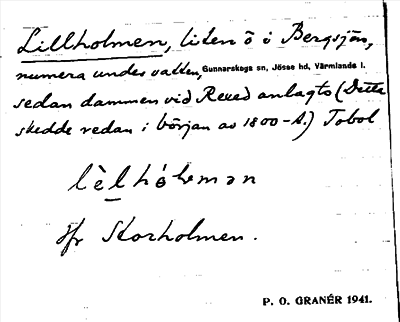 Lillholmen, liten ö i Bergsjön,
numera under vatten, Gunnarskogs sn, Jösse hd, Värmlands l.
sedan dammen vid Rexed anlagts (Detta
skedde redan i början av 1800-t.) Tobol
lèlhólman
Jfr Storholmen.
P. O. GRANÉR 1941.